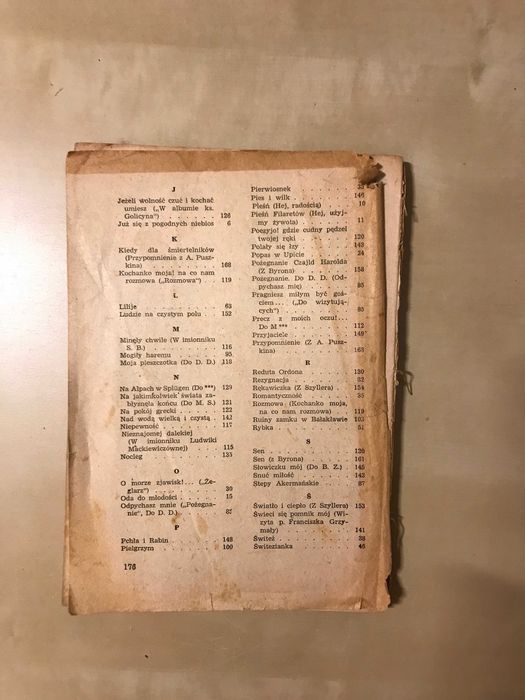 J
Jeżeli wolność czuć i kochać
umiesz („W albumie ks.
Golicyna") . . . . . . . 126
Już się z pogodnych niebios 6
K
Kiedy dla śmiertelników
(Przypomnienie z A. Pusz-
kina) . . . . . . . . . 168
Kochanko moja! na co nam
rozmowa („Rozmowa") . . 119
L
Lilije . . . . . . . . . 63
Ludzie na czystym polu . . 152
M
Minęły chwile (W imionniku
S. B.) . . . . . . . . . 116
Mogiły haremu . . . . . . 95
Moja pieszczotka! (Do D. D.) 118
N
Na Alpach w Splügen (Do ***) 129
Na jakimkolwiek świata za-
błyznęła końcu (Do M. S.) 121
Na pokój grecki . . . . . 122
Nad wodą wielką i czystą . . 142
Niepewność . . . . . . . 117
Nieznajomej dalekiej
(W imionniku Ludwiki
Mackiewiczównej) . . . . 115
Nocleg . . . . . . . . . 135
O
O morze zjawisk!... („Że-
glarz") . . . . . . . . . 30
Oda do młodości . . . . . 15
Odpychasz mnie („Pożegna-
nie", Do D. D.) . . . . . 85
P
Pchła i Rabin . . . . . . 148
Pielgrzym . . . . . . . . 100
176
Pierwiosnek . . . . . . . 33
Pies i wilk . . . . . . . 146
Pieśń (Hej, radością) . . . 10
Pieśń Filaretów (Hej, użyj-
my żywota) . . . . . . . 11
Poezyjo! gdzie cudny pędzel
twojej ręki . . . . . . . 120
Polały się łzy . . . . . . 143
Popas w Upicie . . . . . . 24
Pożegnanie Czajld Harolda
(Z Byrona) . . . . . . . 158
Pożegnanie. Do D. D. (Od-
pychasz mię) . . . . . . 85
Pragniesz miłym być goś-
ciem... („Do wizytują-
cych") . . . . . . . . . 85
Precz z moich oczu!...
Do M *** . . . . . . . . 112
Przyjaciele . . . . . . . 149
Przypomnienie (Z A. Pusz-
kina) . . . . . . . . . 168
R
Reduta Ordona . . . . . . 130
Rezygnacja . . . . . . . 82
Rękawiczka (Z Szyllera) . . 154
Romantyczność . . . . . . 35
Rozmowa (Kochanko moja,
na co nam rozmowa) . . . 119
Ruiny zamku w Bałakławie 103
Rybka . . . . . . . . . . 51
S
Sen . . . . . . . . . . . 126
Sen (z Byrona) . . . . . . 161
Słowiczku mój (Do B. Z.) . . 145
Snuć miłość . . . . . . . 143
Stepy Akermańskie . . . . 87
Ś
Światło i ciepło (Z Szyllera) 153
Świeci się pomnik mój (Wi-
zyta p. Franciszka Grzy-
mały) . . . . . . . . . . 141
Świteź . . . . . . . . . . 38
Świtezianka . . . . . . . 46